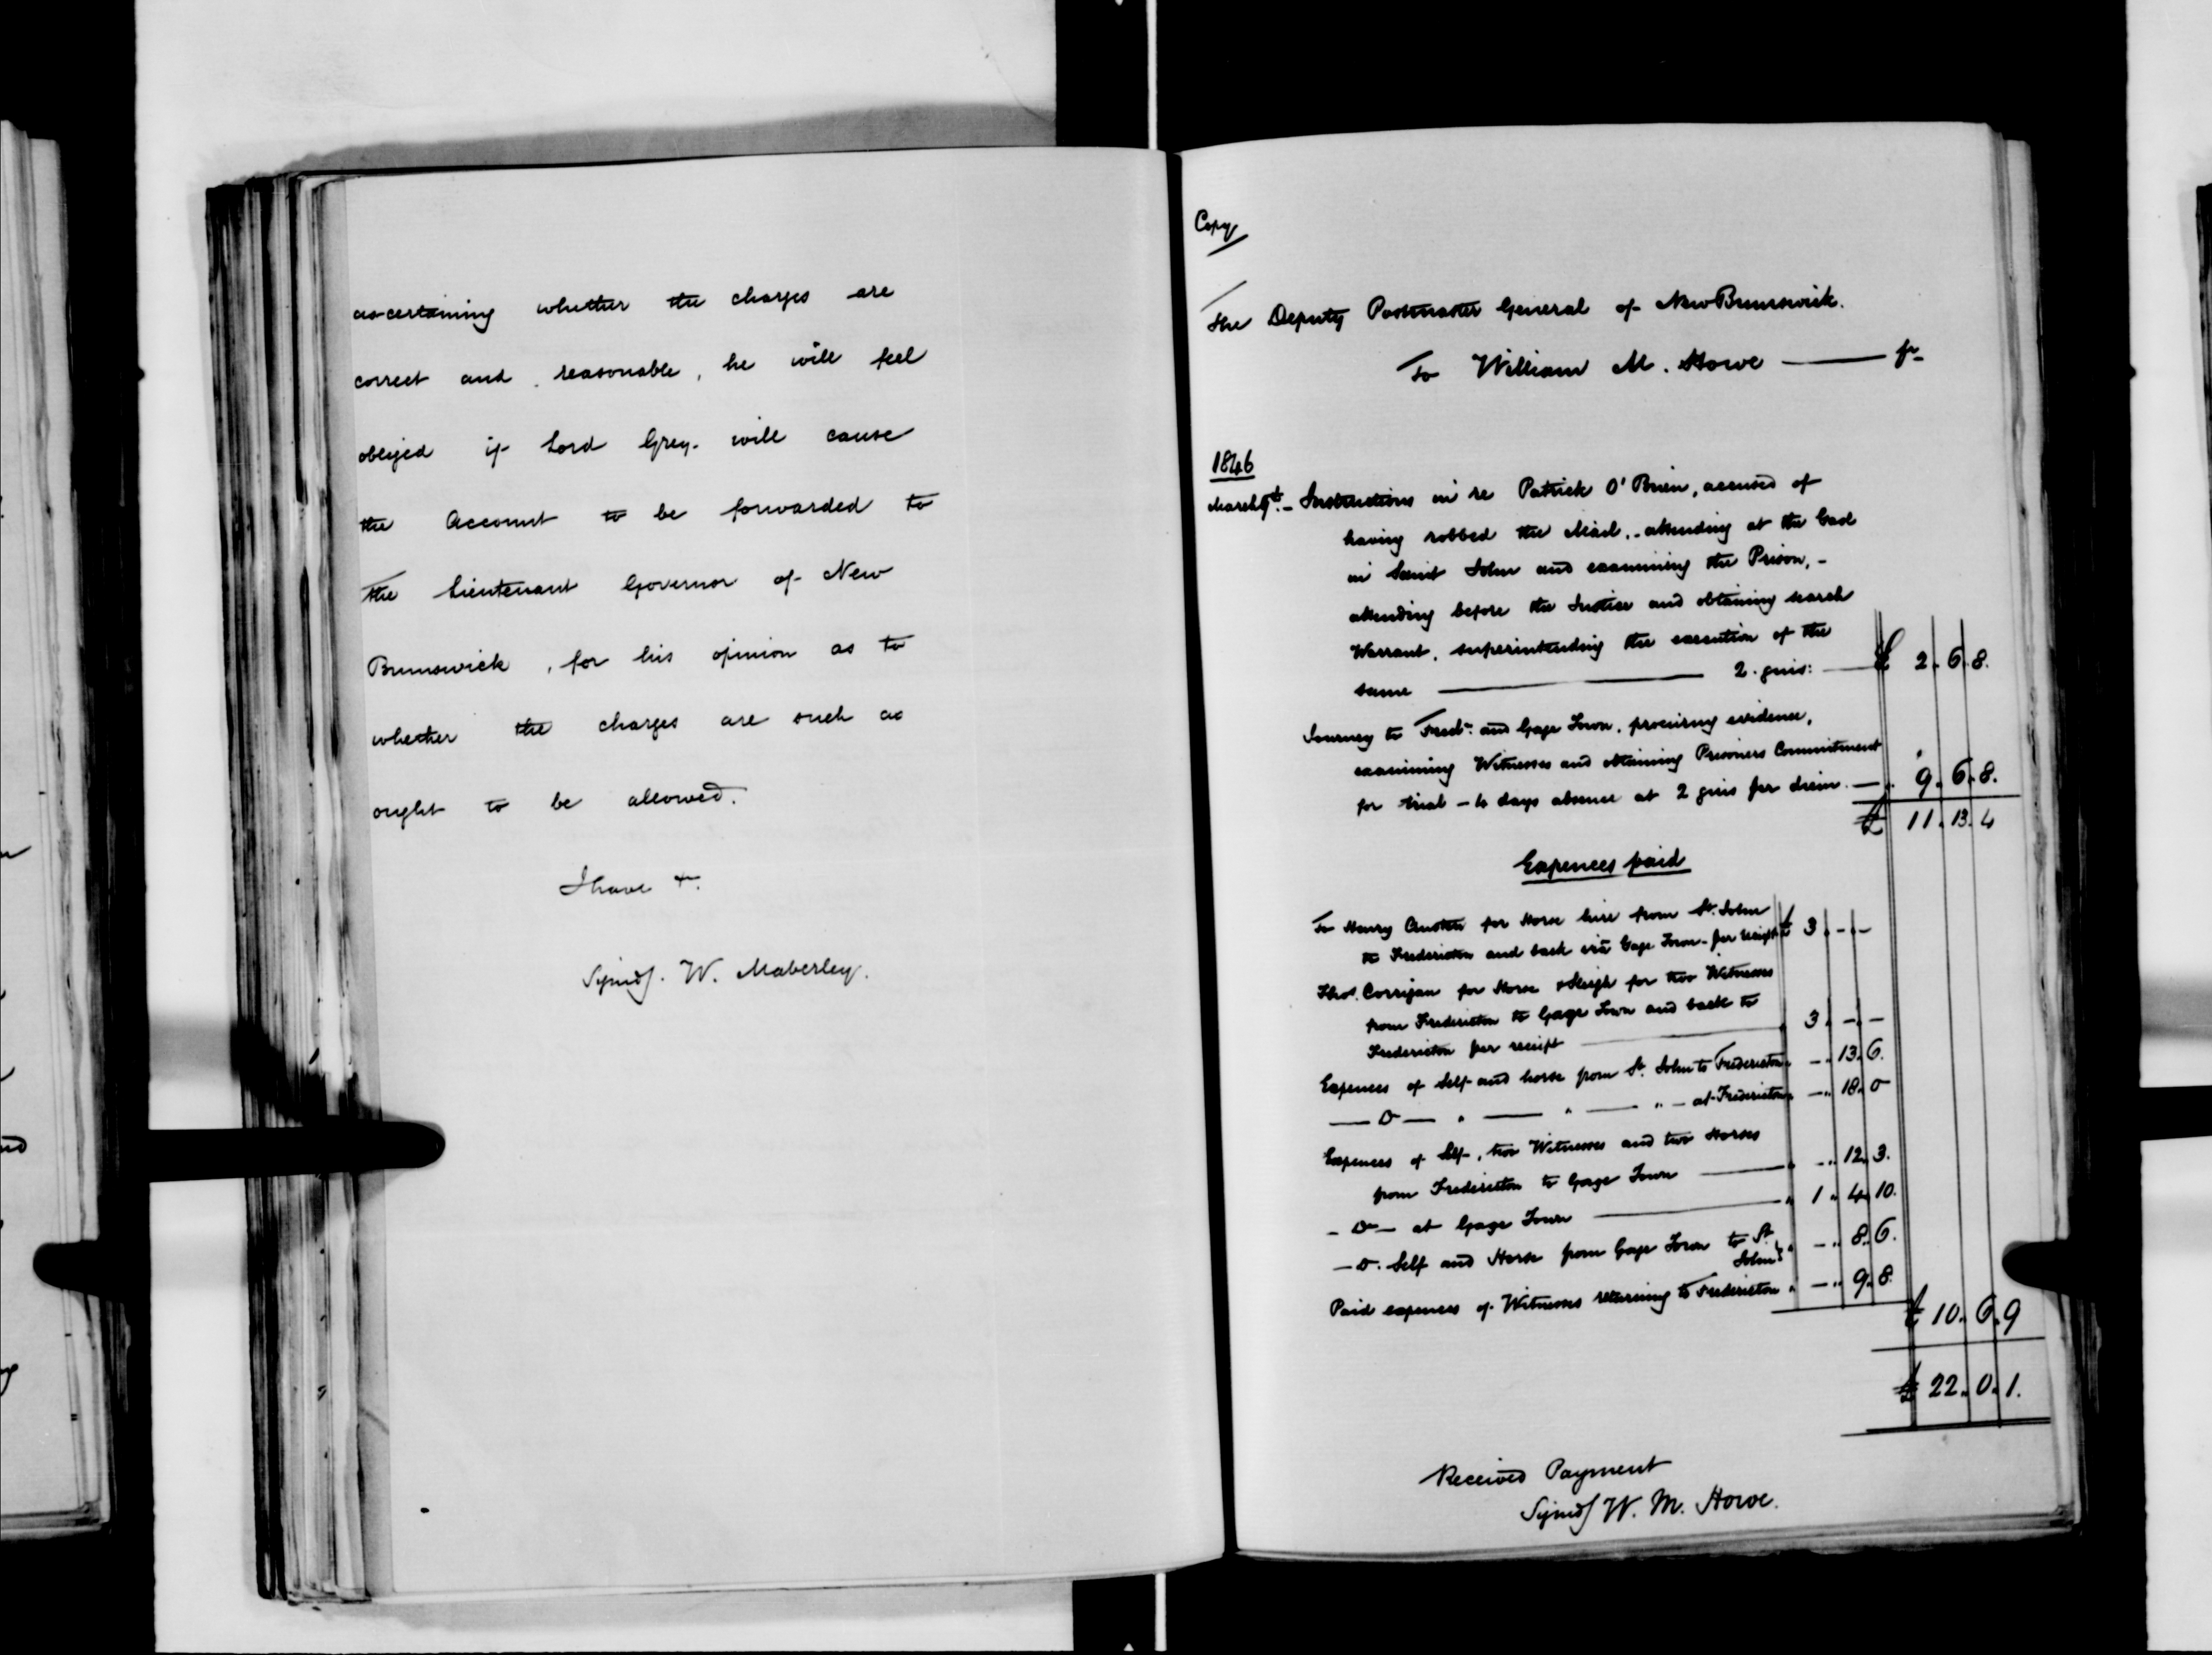 ascertaining whether the charges are
correct and reasonable, he will feel
obliged if Lord Grey will cause
the Account to be forwarded to
the Lieutenant Governor of New
Brunswick, for his opinion as to
whether the charges are such as
ought to be allowed.
I have &c.
Signed/. W. Maberley.
Copy
The Deputy Postmaster General of New Brunswick.
To William M. Howe
1846
March 9th. - Instructions in re Patrick O'Brien, accused of
having robbed the Mail, - attending at the Gaol
in Saint John and examining the Prison, -
attending before the Justice and obtaining search
Warrant, superintending the execution of the
same 2. guis: £ 2. 6. 8.
Journey to Fredn. and Gage Town, procuring evidence,
examining Witnesses and obtaining Prisoners Commitment
for trial - 4 days absence at 2 guis per diem. - 9. 6. 8.
£ 11. 13. 4
Expences paid
To Henry Austin for Horse hire from St. John
to Fredericton and back via Gage Town - per receipt £ 3. - . -
Thos. Corrigan for Horse & Sleigh for two Witnesses
from Fredericton to Gage Town and back to
Fredericton per receipt 3. - . -
Expences of Self and horse from St. John to Fredericton " - .. 13. 6.
— Do — " — " — " - at Fredericton " - .. 18. 0
Expences of Self, two Witnesses and two Horses
from Fredericton to Gage Town — " - .. 12. 3.
- Do - at Gage Town — " 1 .. 4. 10.
- Do. Self and Horse from Gage Town to St.
John " - .. 8. 6.
Paid expences of Witnesses returning to Fredericton " - .. 9. 8
£ 10. 6. 9
£ 22. 0. 1.
Received Payment
Signed/ W. M. Howe.